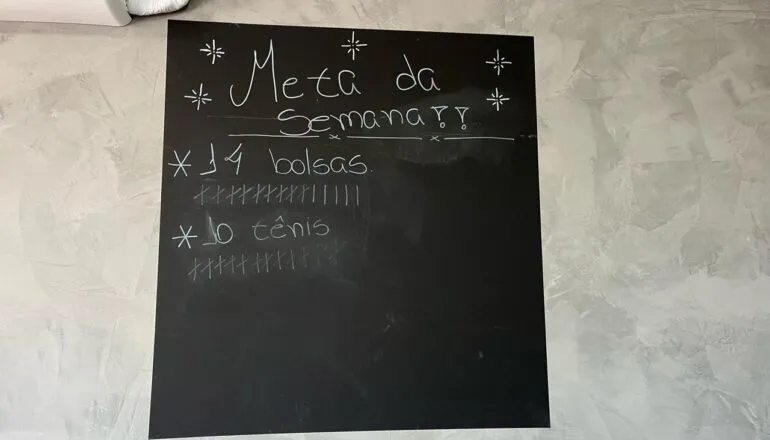 Meta da
Semana!!
* 14 bolsas.
* 10 tênis